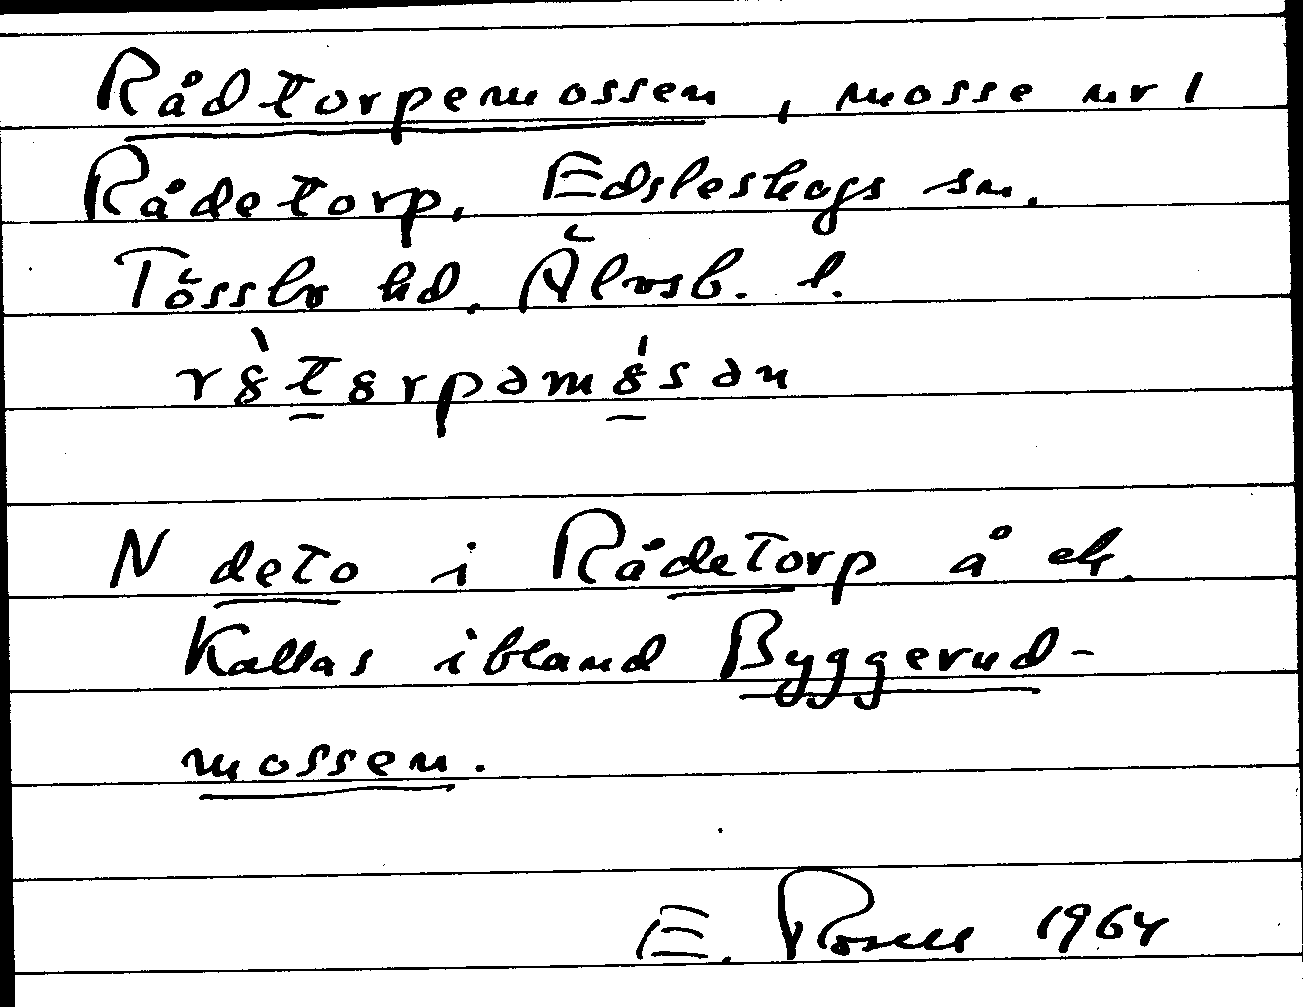 Rådtorpemossen, mosse nr 1
Rådetorp, Edsleskogs sn.
Tössbo hd. Älvsb. l.
rὸ̀tərpəmósən
N deto i Rådetorp å ek.
Kallas ibland Byggerud-
mossen.
E. Rosell 1964